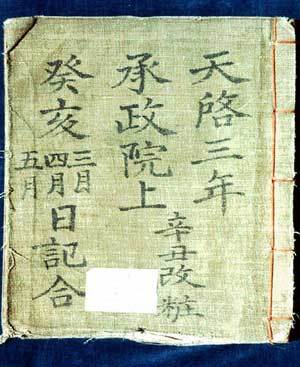 天啓三年
辛丑改粧
承政院上
癸亥 三月 四月 五月 日記合